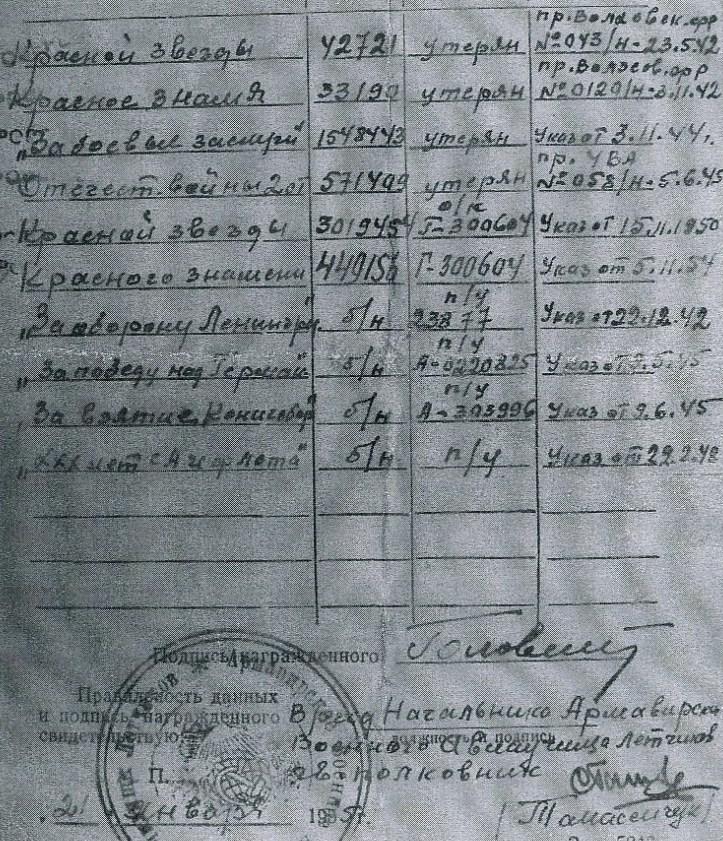 пр. Волховск. фр
Красной звезды 42721 утерян №043/н-23.5.42
пр. Волхов. фр
Красное знамя 33199 утерян №0129/н-3.11.42
"За боевые заслуги" 1548443 утерян Указ от 3.11.44г.
пр. ЧВА
Отечест. войны 2 ст 571499 утерян №058/н-5.6.45
о/к
Красной звезды 3019454 Г-300604 Указ от 15.11.1950
Красного знамени 449156 Г-300604 Указ от 5.11.54
п/у
"За оборону Ленингр." б/н 23877 Указ от 22.12.42
п/у
"За победу над Герман" б/н А-0220825 Указ от 9.5.45
п/у
"За взятие Кенигсбер" б/н А-303996 Указ от 9.6.45
"ХХХ лет СА и флота" б/н п/у Указ от 22.2.48
Подпись награжденного
Правильность данных
и подпись награжденного Врид Начальника Армавирско
свидетельствую должность и подпись
Военного Авиаучилища Летчиков
П. полковник
"21" января 1955г.
/Томасенчук/